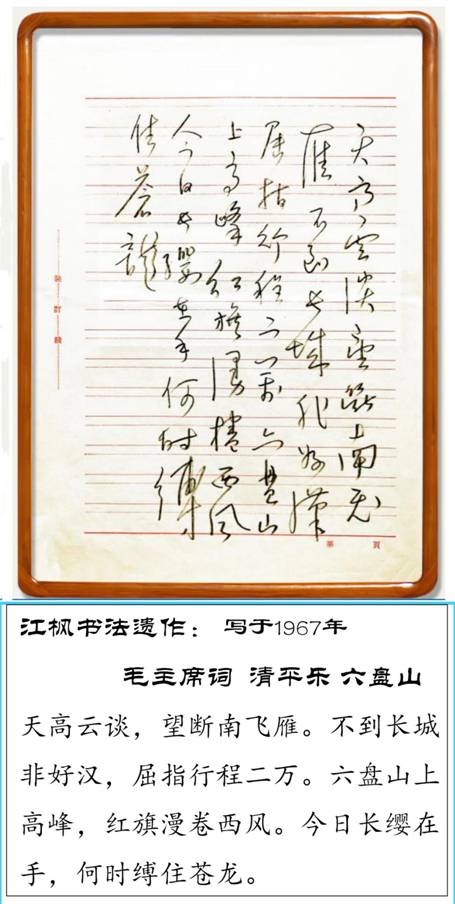 天高雲淡望断南飛
雁不到长城非好漢
屈指行程二萬六盘山
上高峰红旗漫捲西风
今日长缨在手何时縛
住蒼龍
装訂線
第 頁
江枫书法遗作： 写于1967年
毛主席词 清平乐 六盘山
天高云谈，望断南飞雁。不到长城
非好汉，屈指行程二万。六盘山上
高峰，红旗漫卷西风。今日长缨在
手，何时缚住苍龙。